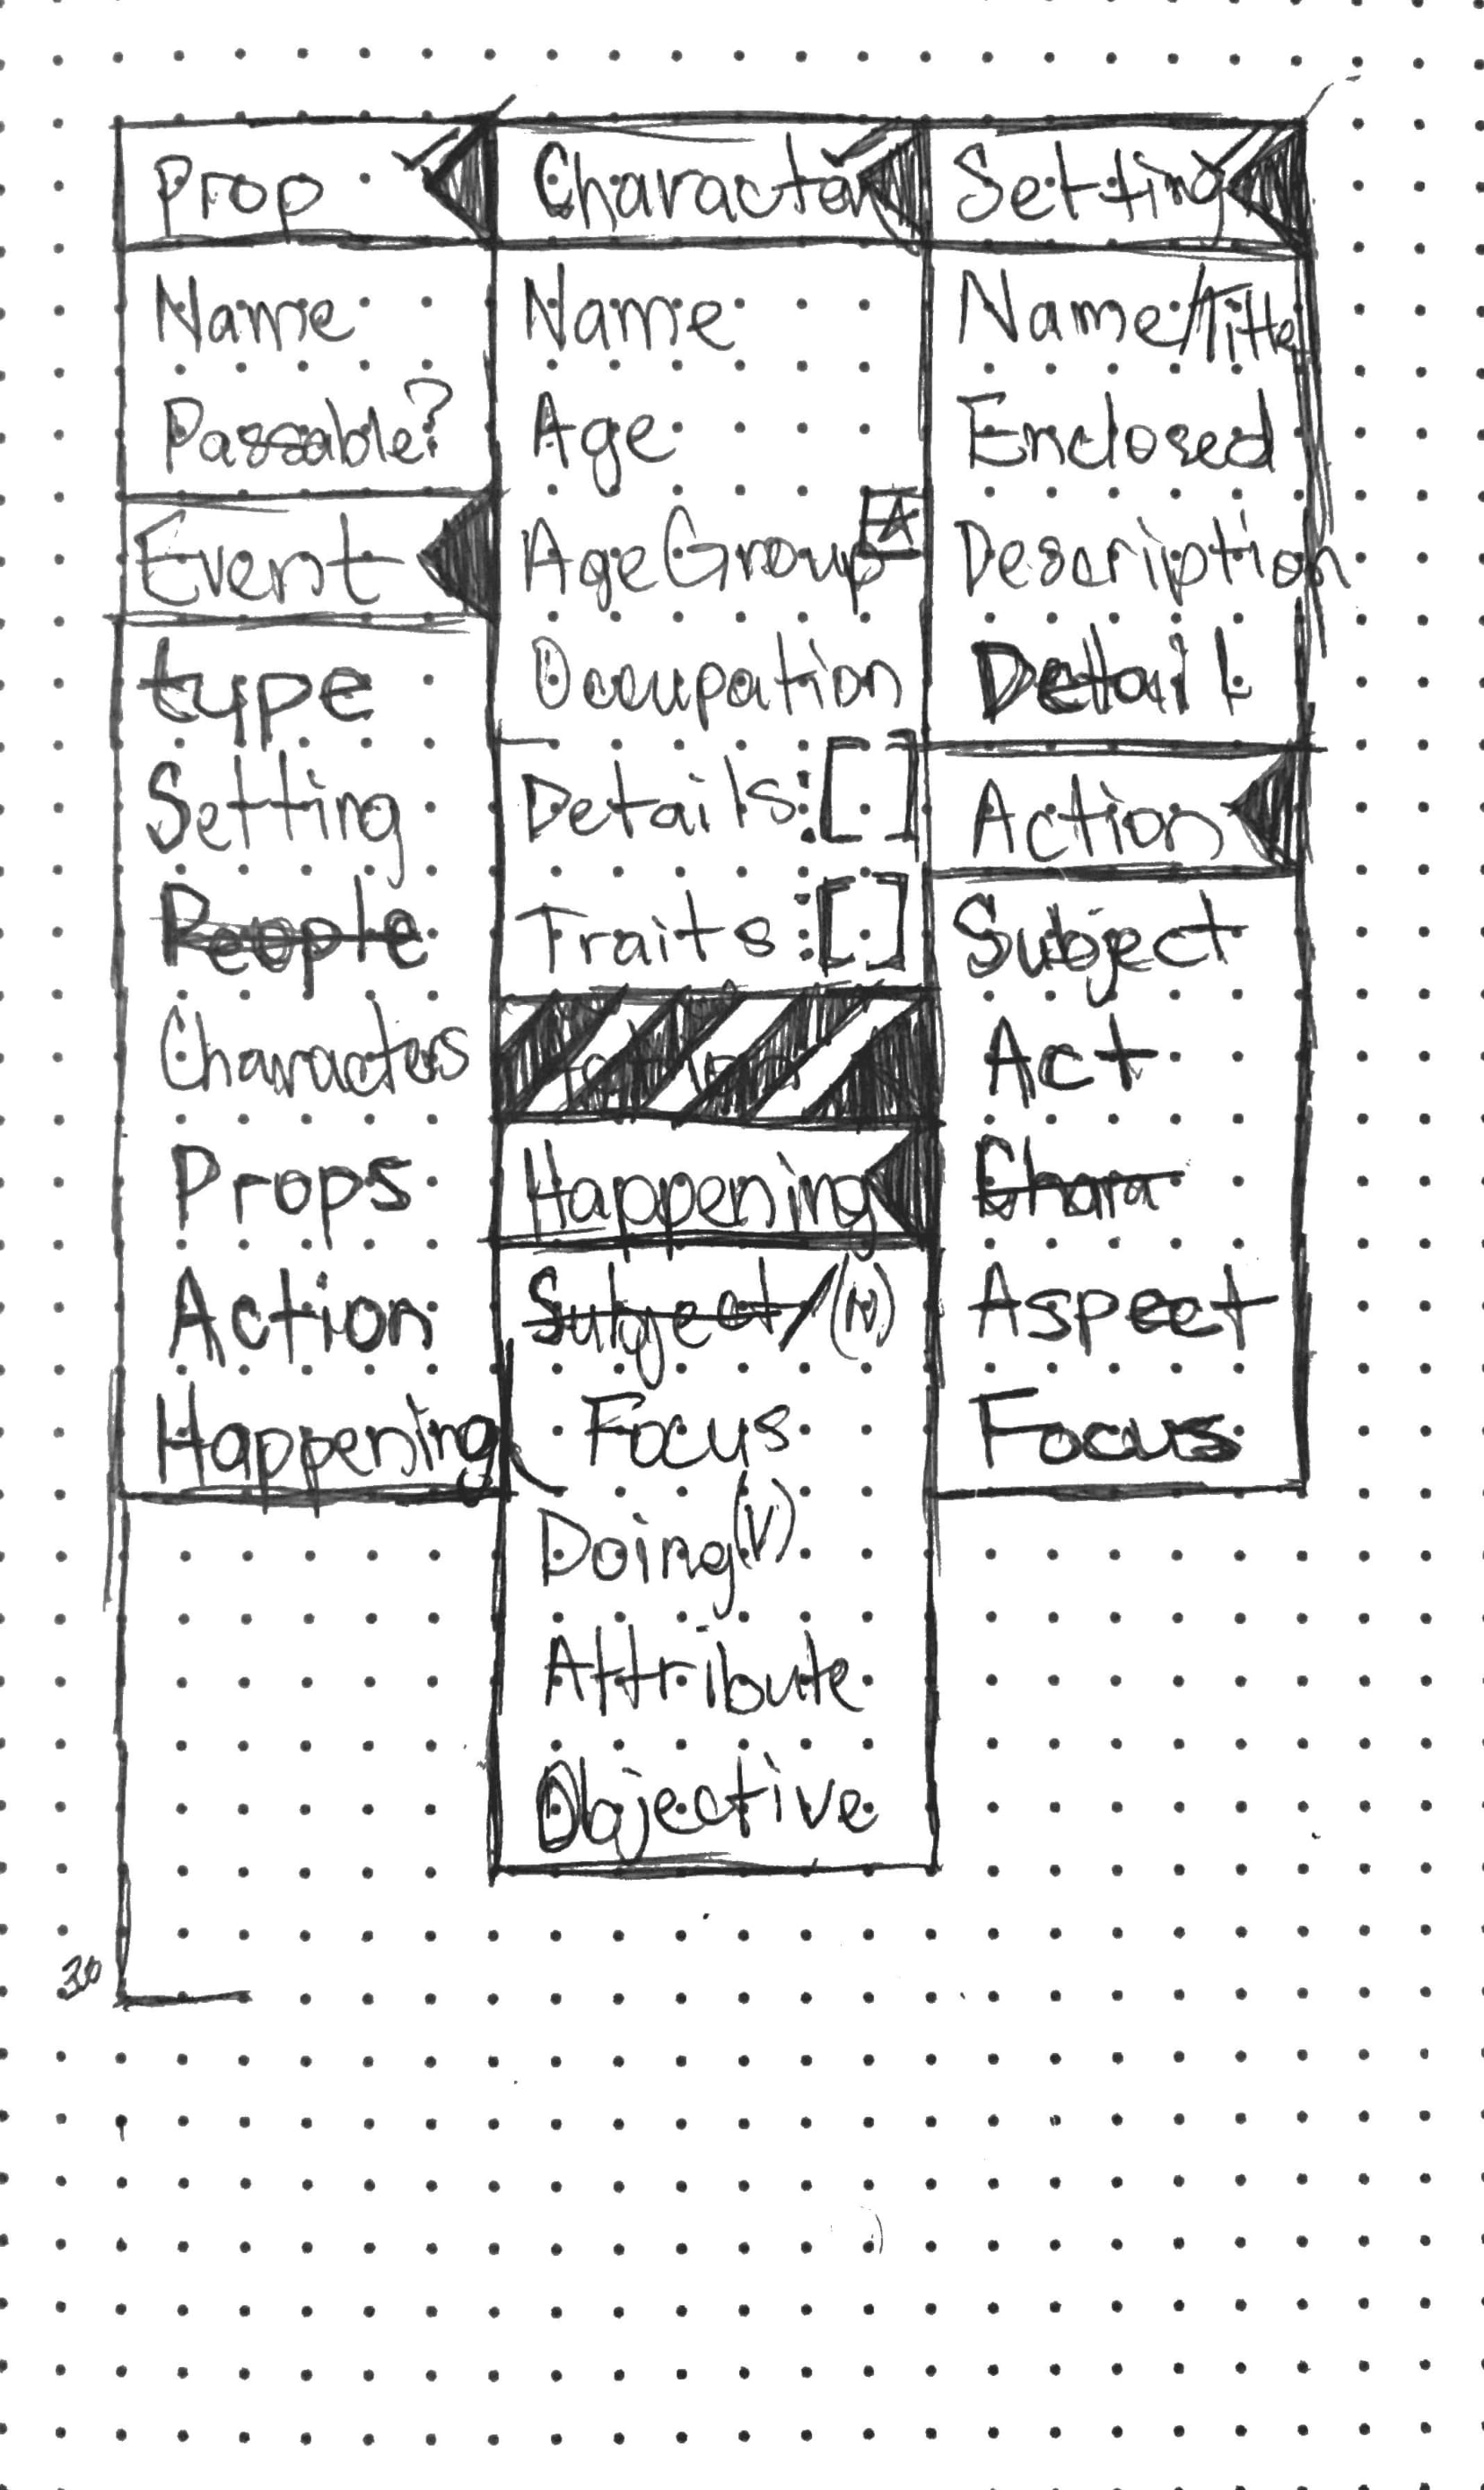 Prop
Name
Passable?
Event
type
Setting
People
Characters
Props
Action
Happening
Character
Name
Age
AgeGroup A
Occupation
Details:[]
Traits:[]
Happening
Subject/(N)
Focus
Doing(V)
Attribute
Objective
Setting
Name/Title
Enclosed
Description
Detail
Action
Subject
Act
Chara
Aspect
Focus
30